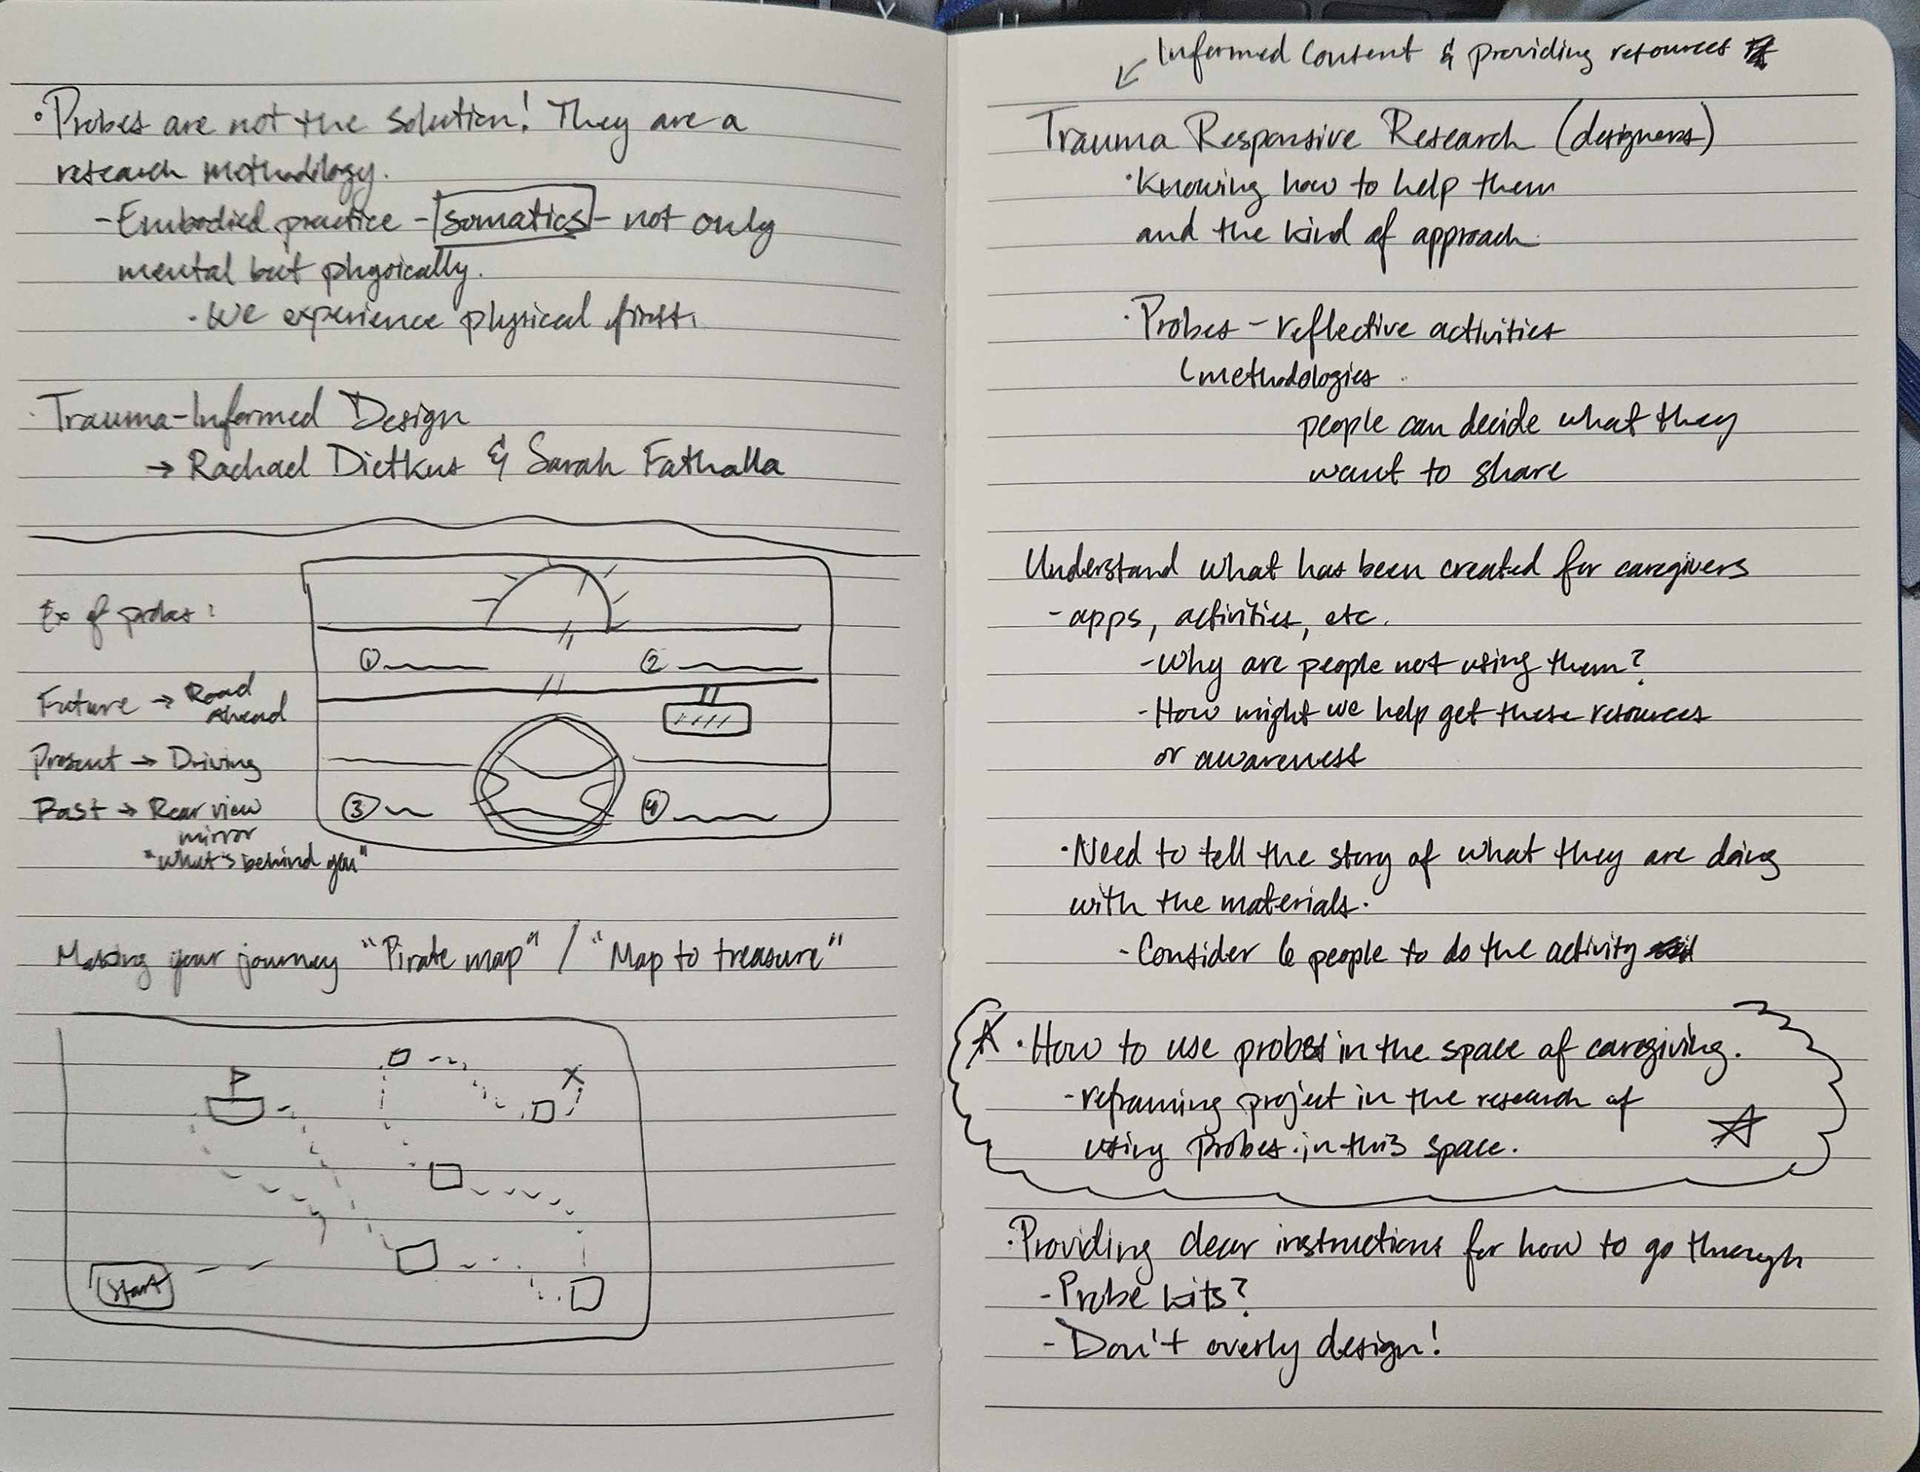 • Probes are not the solution! They are a
research methodology.
- Embodied practice - somatics - not only
mental but physically.
• We experience physical first.
• Trauma-Informed Design
→ Rachael Dietkus & Sarah Fathalla
Ex of probes:
① ②
Future → Road
Ahead
Present → Driving
Past → Rear view
mirror
"What's behind you"
③ ④
Making your journey "Pirate map" / "Map to treasure"
X
Start
Informed Consent & providing resources
Trauma Responsive Research (designers)
• Knowing how to help them
and the kind of approach.
• Probes - reflective activities
(methodologies
people can decide what they
want to share
Understand what has been created for caregivers
- apps, activities, etc.
- Why are people not using them?
- How might we help get these resources
or awareness
• Need to tell the story of what they are doing
with the materials.
- Consider 6 people to do the activity
• How to use probes in the space of caregiving.
- reframing project in the research of
using probes in this space.
• Providing clear instructions for how to go through
- Probe kits?
- Don't overly design!